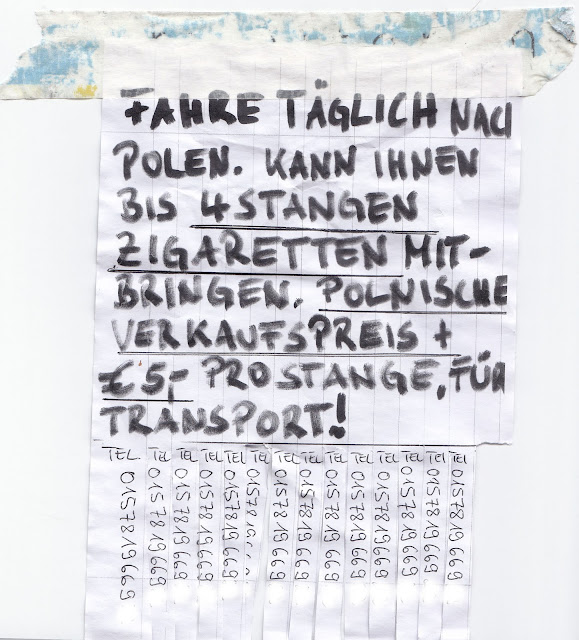 FAHRE TÄGLICH NACH
POLEN. KANN IHNEN
BIS 4 STANGEN
ZIGARETTEN MIT-
BRINGEN. POLNISCHE
VERKAUFSPREIS +
€ 5,- PRO STANGE, FÜR
TRANSPORT!
TEL 0157819669
TEL 0157819669
TEL 0157819669
TEL 0157819669
TEL 0157819
TEL 0157819669
TEL 0157819669
TEL 0157819669
TEL 0157819669
TEL 0157819669
TEL 0157819669
TEL 0157819669
TEL 0157819669
TEL 0157819669